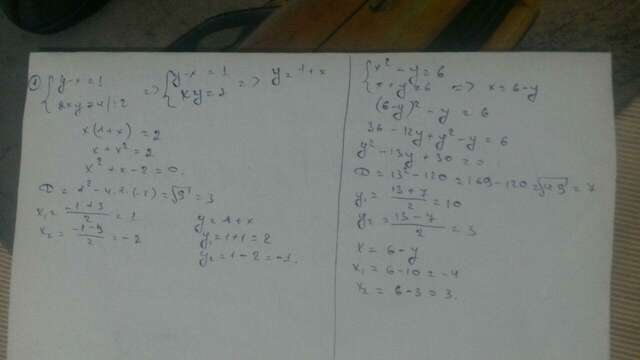 ① { y-x=1 => { y-x=1 => y=1+x
xy=2
x(1+x)=2
x+x²=2
x²+x-2=0.
D=1²-4·1·(-2)=√9=3
x₁=(-1+3)/2=1
x₂=(-1-3)/2=-2
y=1+x
y₁=1+1=2
y₂=1-2=-1.
{ x²-y=6
x+y=6 => x=6-y
(6-y)²-y=6
36-12y+y²-y=6
y²-13y+30=0
D=13²-120=169-120=√49=7
y₁=(13+7)/2=10
y₂=(13-7)/2=3
x=6-y
x₁=6-10=-4
x₂=6-3=3.